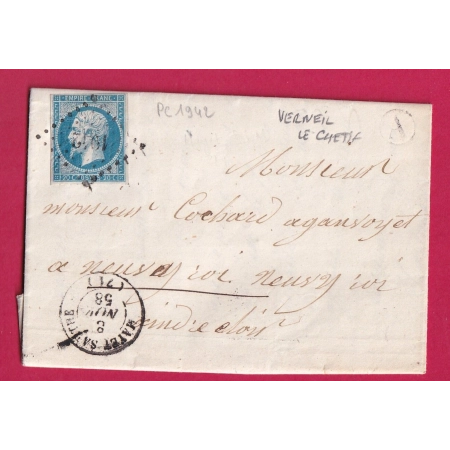 EMPIRE FRANC
1942
20 C. 20 C.
PC 1942
VERNEIL
LE CHETIF
Monsieur
monsieur Cochard aganvoyet
a neuvy roi neuvy roi
indre eloir
MAYET SARTHE
8
NOV
58
(71)